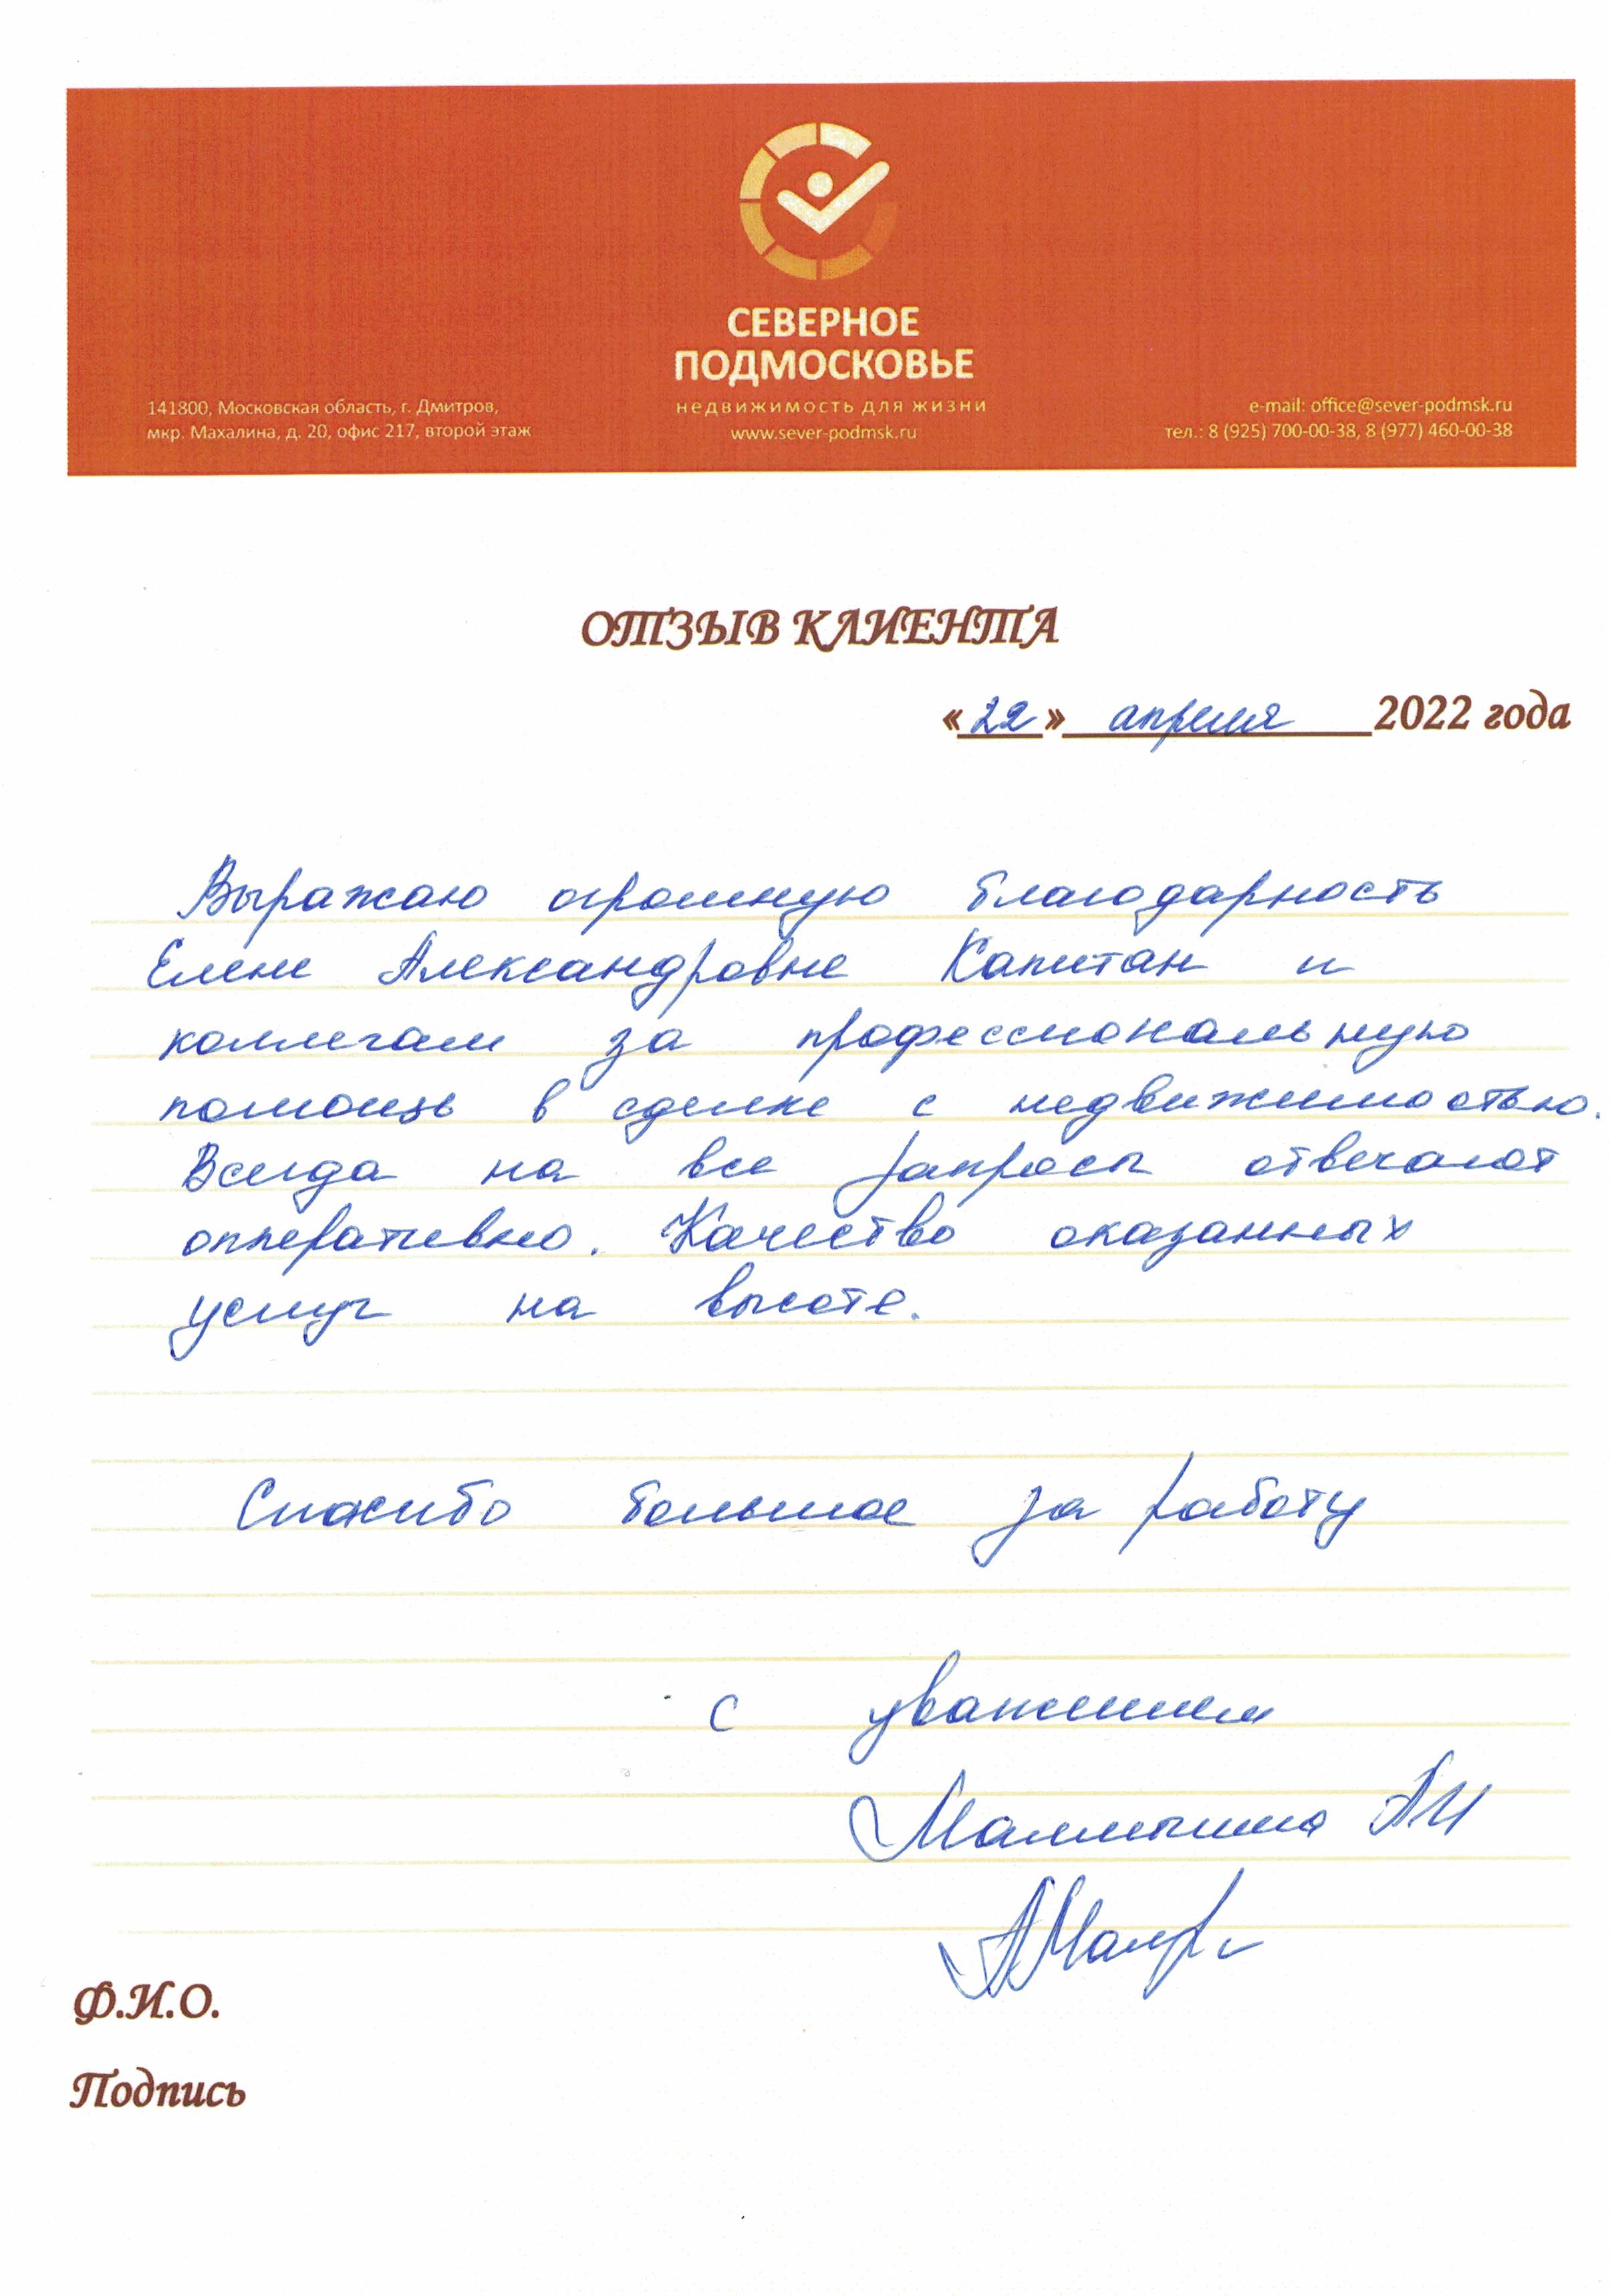 СЕВЕРНОЕ
ПОДМОСКОВЬЕ
недвижимость для жизни
www.sever-podmsk.ru
141800, Московская область, г. Дмитров,
мкр. Махалина, д. 20, офис 217, второй этаж
e-mail: office@sever-podmsk.ru
тел.: 8 (925) 700-00-38, 8 (977) 460-00-38
ОТЗЫВ КЛИЕНТА
«22» апреля 2022 года
Выражаю огромную благодарность
Елене Александровне Капитан и
коллегам за профессиональную
помощь в сделке с недвижимостью.
Всегда на все запросы отвечают
опперативно. Качество оказанных
услуг на высоте.
Спасибо большое за работу
С уважением
Ф.И.О.
Подпись